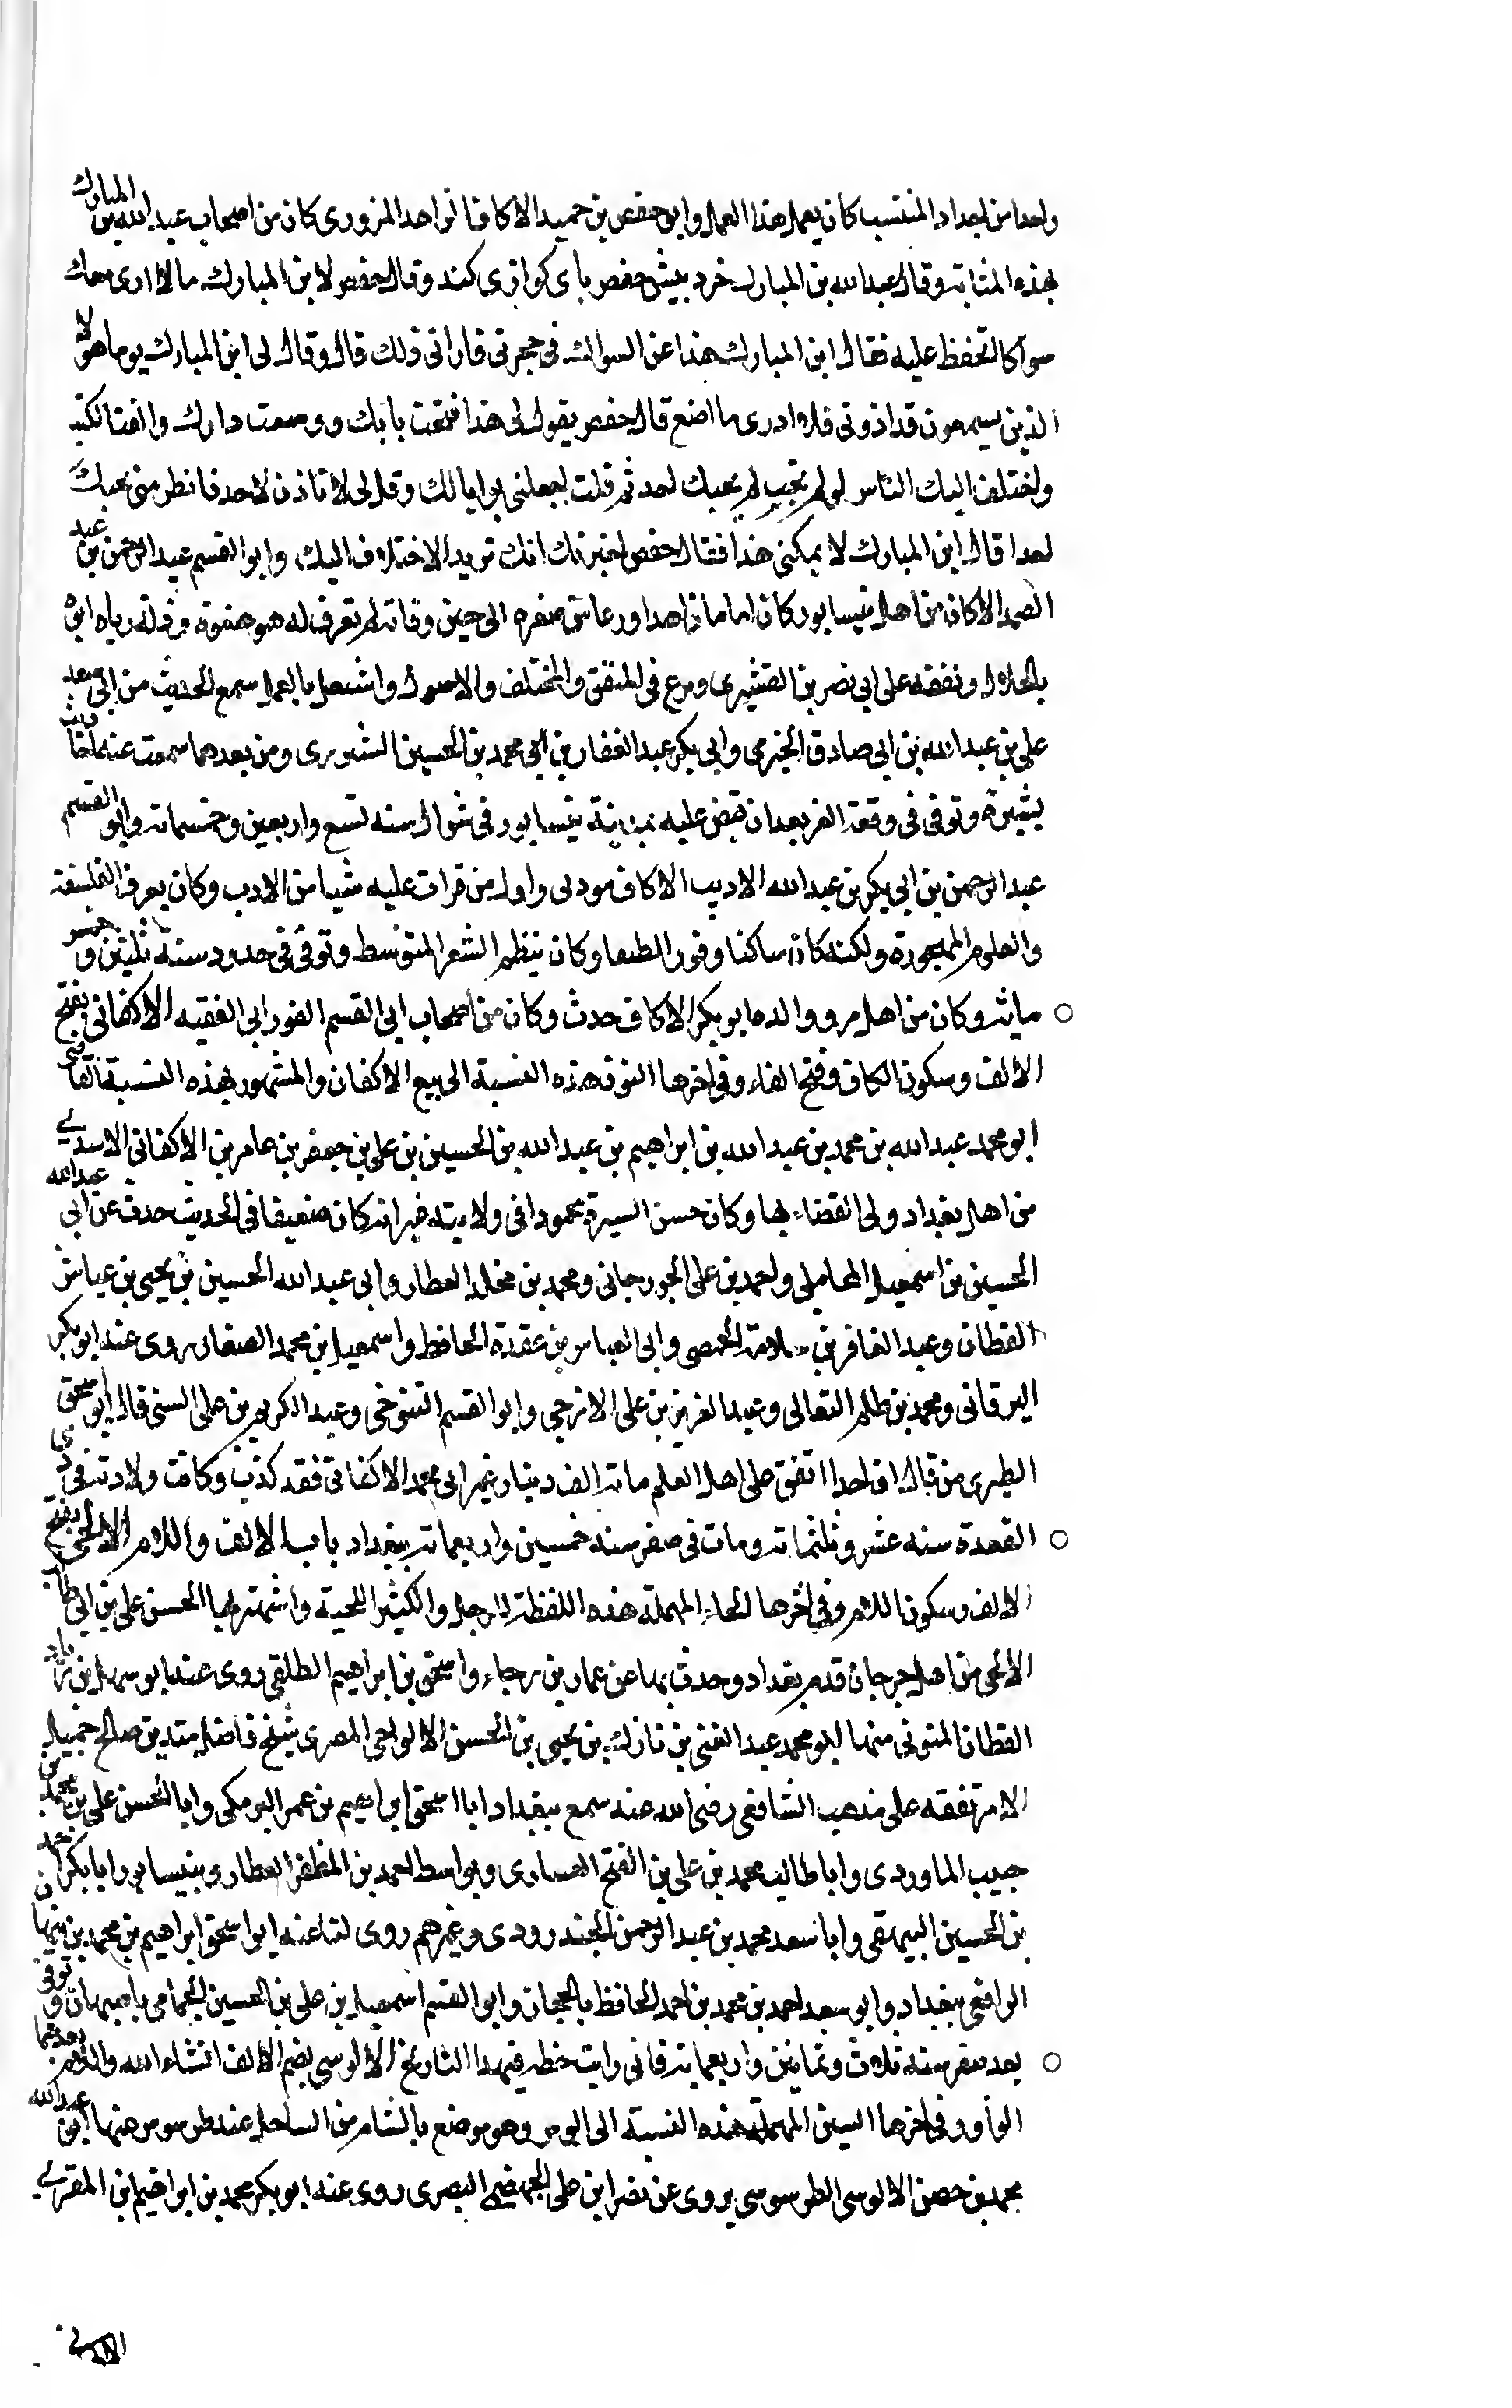 واحدا من اجداد المنتسب كان يعمل هذا العمل وابو حفص بن حميد الاكاف الزاهد المروزى كان من اصحاب عبد الله بن المبارك
بهذه المثابة وقال عبد الله بن المبارك خرد پيش حفص باى كوازى كند وقال حفص لابن المبارك مالا ارى معك
سواكا لتحفظ عليه فقال ابن المبارك هذا عن السواك فى حجرتى فارانى ذلك قال وقال لى ابن المبارك يوما هولاء
الذين يسيمعون قد اذونى فلا ادرى ما اصنع قال حفص يقول لى هذا فتحت بابك ووسعت دارك والفت الكتب
واختلف اليك الناس لو لم تجب لم يجبك احد ثم قلت اجعلنى بوابا لك وقل لى لا تاذن لاحد فانظر متى يجيك
احدا قال ابن المبارك لا يمكنى هذا فقال حفص اخبرتك انك تريد الاختلاف اليك، وابو القسم عبد الرحمن بن عبد
الصمد الاكاف من اهل نيسابور كان اماما زاهدا ورعا من صغره الى حين وفاته لم تعرف له هو هفوة فزلة رباه ابوه
بالحلال وتفقه على ابى نصر بن القشيرى وبرع فى المتفق والمختلف والاصول واشتغل بالعمل سمع الحديث من ابى سعد
على بن عبد الله بن ابى صادق الحيرى وابى بكر عبد الغفار بن محمد بن الحسين الشيروى ومن بعدهما سمعت عنه احاديث
يسيرة وتوفى فى وقعة الغز بعد ان قبض عليه بمدينة نيسابور فى شوال سنه تسع واربعين وخمسمائه وابو القسم
عبد الرحمن بن ابى بكر بن عبد الله الاديب الاكاف مودبى واول من قرات عليه شيا من الادب وكان يعرف الفلسفة
والعلوم المهجورة ولكنه كان ساكنا وقور الطبع وكان ينظم الشعر المتوسط وتوفى فى حدود سنة ثلثين وخمس
مائه وكان من اهل مرو ووالده ابو بكر الاكاف حدث وكان من اصحاب ابى القسم الفورانى الفقيه الاكفانى بفتح
الالف وسكون الكاف وفتح الفاء وفى اخرها النون هذه النسبة الى بيع الاكفان والمشهور بهذه النسبة القاضى
ابو محمد عبد الله بن محمد بن عبد الله بن ابراهيم بن عبد الله بن الحسين بن على بن جعفر بن عامر بن الاكفانى الاسدى
من اهل بغداد ولى القضاء بها وكان حسن السيرة محمودا فى ولايته غير انه كان ضعيفا فى الحديث حدث عن ابى عبد الله
الحسين بن اسمعيل المحاملى واحمد بن على الجورجانى ومحمد بن مخلد العطار وابى عبد الله الحسين بن يحيى بن عياش
القطان وعبد الغافر بن سلامة الحمصى وابى العباس بن عقدة الحافظ واسمعيل بن محمد الصفار روى عنه ابو بكر
البرقانى ومحمد بن طلحة النعالى وعبد العزيز بن على الازجى وابو القسم التنوخى وعبد الكريم بن على السنى قال ابو اسحق
الطبرى من قال ان احدا انفق على اهل العلم مائة الف دينار غير ابى محمد الاكفانى فقد كذب وكانت ولادته فى ذى
القعدة سنه عشر وثلثمائه ومات فى صفر سنه خمسين واربعمائه ببغداد باب الالف واللام الالحى بفتح
الالف وسكون اللام وفى اخرها الحاء المهملة هذه اللفظة للرجل والكثير اللحية واشتهر بها الحسن على بن ابى طالب
الالحى من اهل جرجان قدم بغداد وحدث بها عن عمار بن رجاء واسحق بن ابراهيم الطلقى روى عنه ابو سهل بن زياد
القطان المتوثى منها ابو محمد عبد الغنى بن نازك بن يحيى بن الحسن الالواحى المصرى شيخ فاضل متدين صالح جميل
الامر تفقه على مذهب الشافعى رضى الله عنه سمع ببغداد ابا اسحق ابراهيم بن عمر البرمكى وابا الحسن على بن محمد بن
حبيب الماوردى وابا طالب محمد بن على بن الفتح العشارى وبواسط احمد بن المظفر العطار وبنيسابور ابا بكر احمد
بن الحسين البيهقى وابا سعد محمد بن عبد الرحمن الجنذرودى وغيرهم روى لنا عنه ابو اسحق ابراهيم بن محمد بن نبهان
الواقفى ببغداد وابو سعد احمد بن محمد بن احمد الحافظ بالحجاز وابو القسم اسمعيل بن على بن الحسين الحمامى باصبهان وتوفى
بعد صفر سنة ثلاث وثمانين واربعمائه فانى رايت خطه فيها هذا التاريخ الالوسى بضم الالف انشاء الله واللام بعدهما
الواو وفى اخرها السين المهملة هذه النسبة الى الوس وهو موضع بالشام من الساحل عند طرسوس منها ابو عبد الله
محمد بن حصن الالوسى الطرسوسى يروى عن نصر ابن على الجهضمى البصرى روى عنه ابو بكر محمد بن ابراهيم ابن المقرى